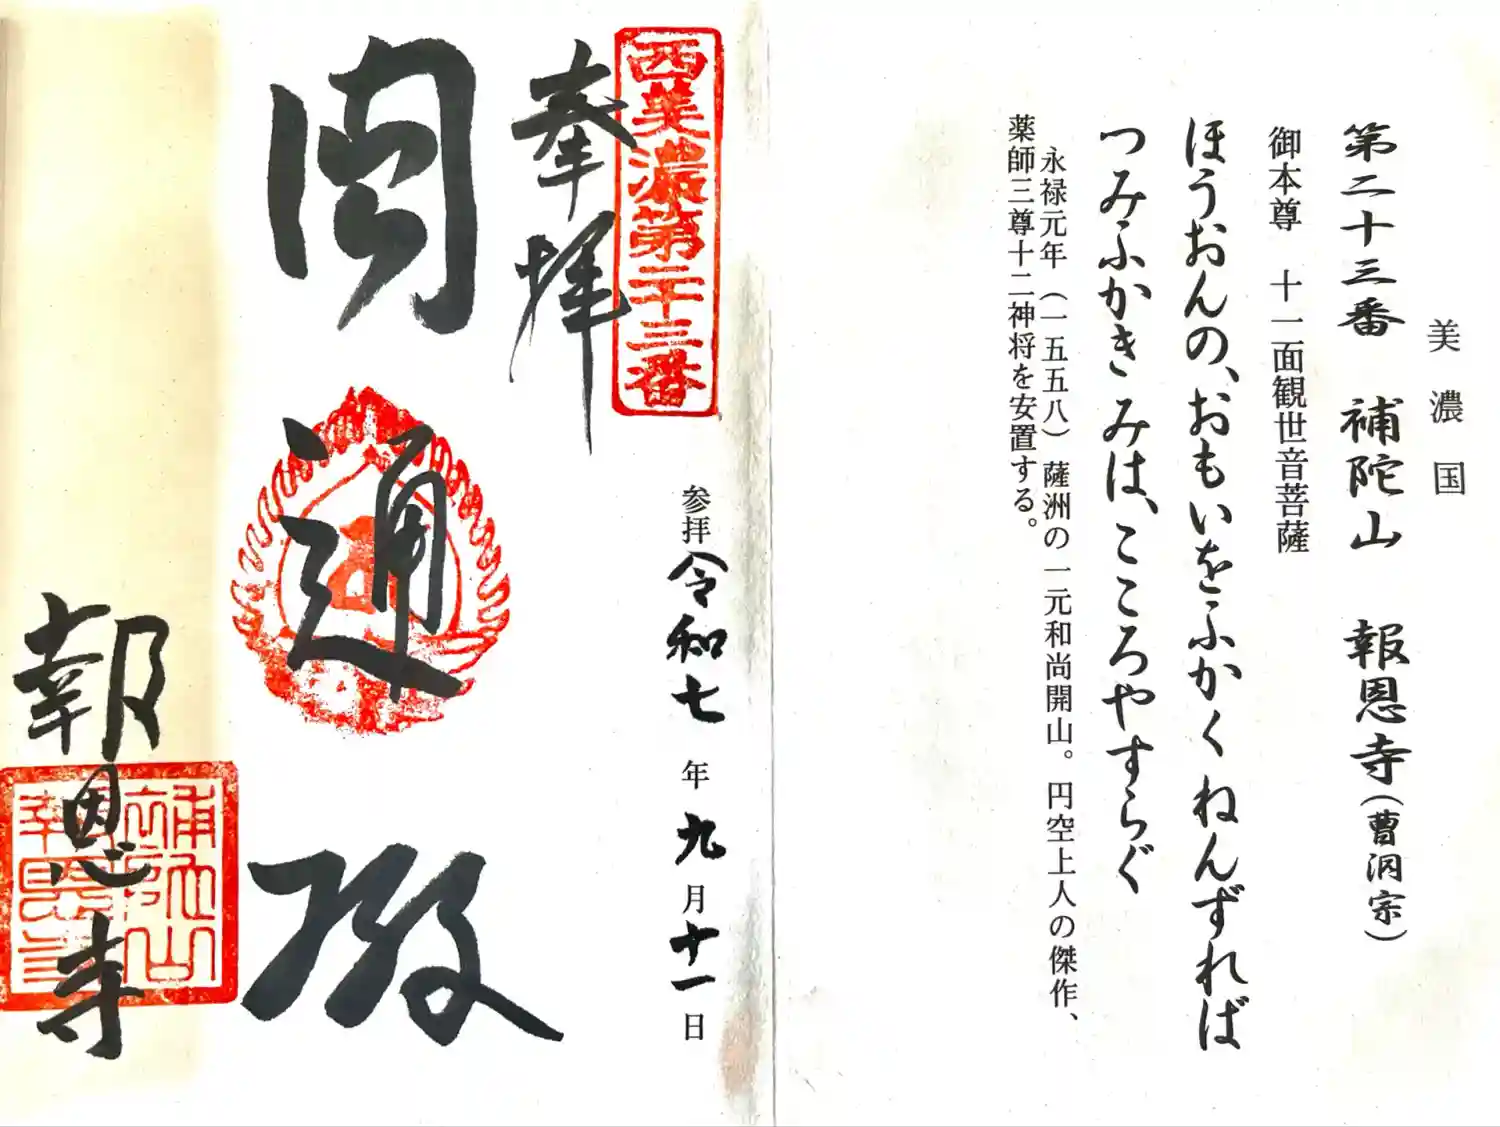 美濃国
第二十三番 補陀山 報恩寺(曹洞宗)
御本尊 十一面観世音菩薩
ほうおんの、おもいをふかくねんずれば
つみふかきみは、こころやすらぐ
永禄元年(一五五八)薩洲の一元和尚開山。円空上人の傑作、
薬師三尊十二神将を安置する。
西美濃第二十三番
参拝令和七年九月十一日
奉拝
圓通殿
報恩寺
補陀山
報恩寺